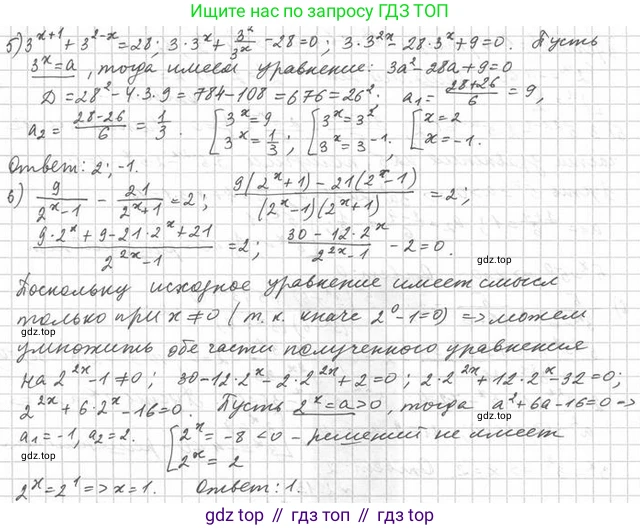 Ищите нас по запросу ГДЗ ТОП
б) 3^{x+1} + 3^{2-x} = 28; 3·3^x + 3^2/3^x - 28 = 0; 3·3^{2x} - 28·3^x + 9 = 0. Пусть
3^x = a, тогда имеем уравнение: 3a^2 - 28a + 9 = 0
D = 28^2 - 4·3·9 = 784 - 108 = 676 = 26^2; a_1 = (28+26)/6 = 9,
a_2 = (28-26)/6 = 1/3. [3^x = 9 3^x = 1/3; [3^x = 3^2 3^x = 3^{-1}; [x = 2 x = -1.
Ответ: 2; -1.
в) 9/(2^x-1) - 21/(2^x+1) = 2; (9(2^x+1) - 21(2^x-1))/((2^x-1)(2^x+1)) = 2;
(9·2^x + 9 - 21·2^x + 21)/(2^{2x}-1) = 2; (30 - 12·2^x)/(2^{2x}-1) - 2 = 0.
gdz.top
Поскольку исходное уравнение имеет смысл
только при x ≠ 0 (т.к. иначе 2^0 - 1 = 0) => можем
gdz.top
умножить обе части полученного уравнения
на 2^{2x} - 1 ≠ 0; 30 - 12·2^x - 2·2^{2x} + 2 = 0; 2·2^{2x} + 12·2^x - 32 = 0;
2^{2x} + 6·2^x - 16 = 0. Пусть 2^x = a > 0, тогда a^2 + 6a - 16 = 0 =>
a_1 = -1, a_2 = 2. [2^x = -8 < 0 - решений не имеет 2^x = 2
2^x = 2^1 => x = 1. Ответ: 1.
gdz.top
gdz.top // gdz.top // gdz.top